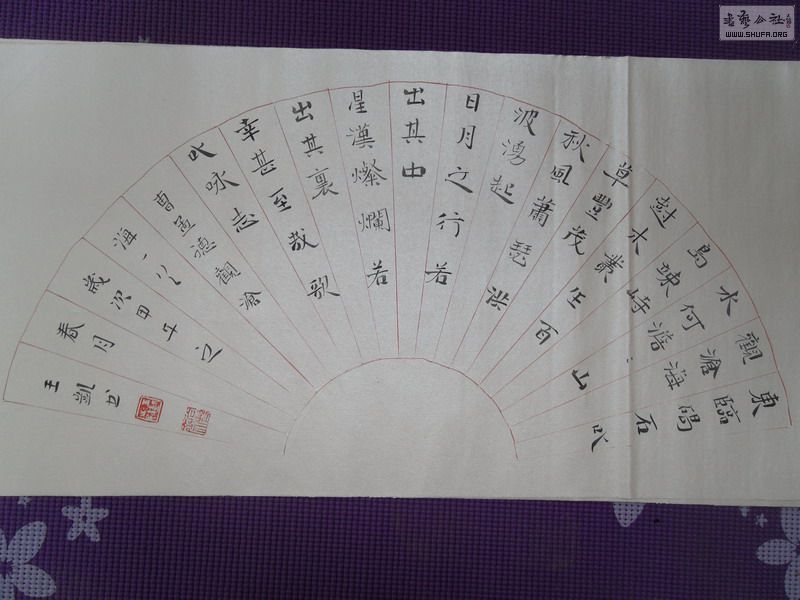 東臨碣石以
觀滄海
水何澹〻山
島竦峙
樹木叢生百
草豐茂
秋風蕭瑟洪
波湧起
日月之行若
出其中
星漢燦爛若
出其裏
幸甚至哉歌
以咏志
曹孟德觀滄
海一
歲次甲午之
春月
王凱书
書藝公社
WWW.SHUFA.ORG